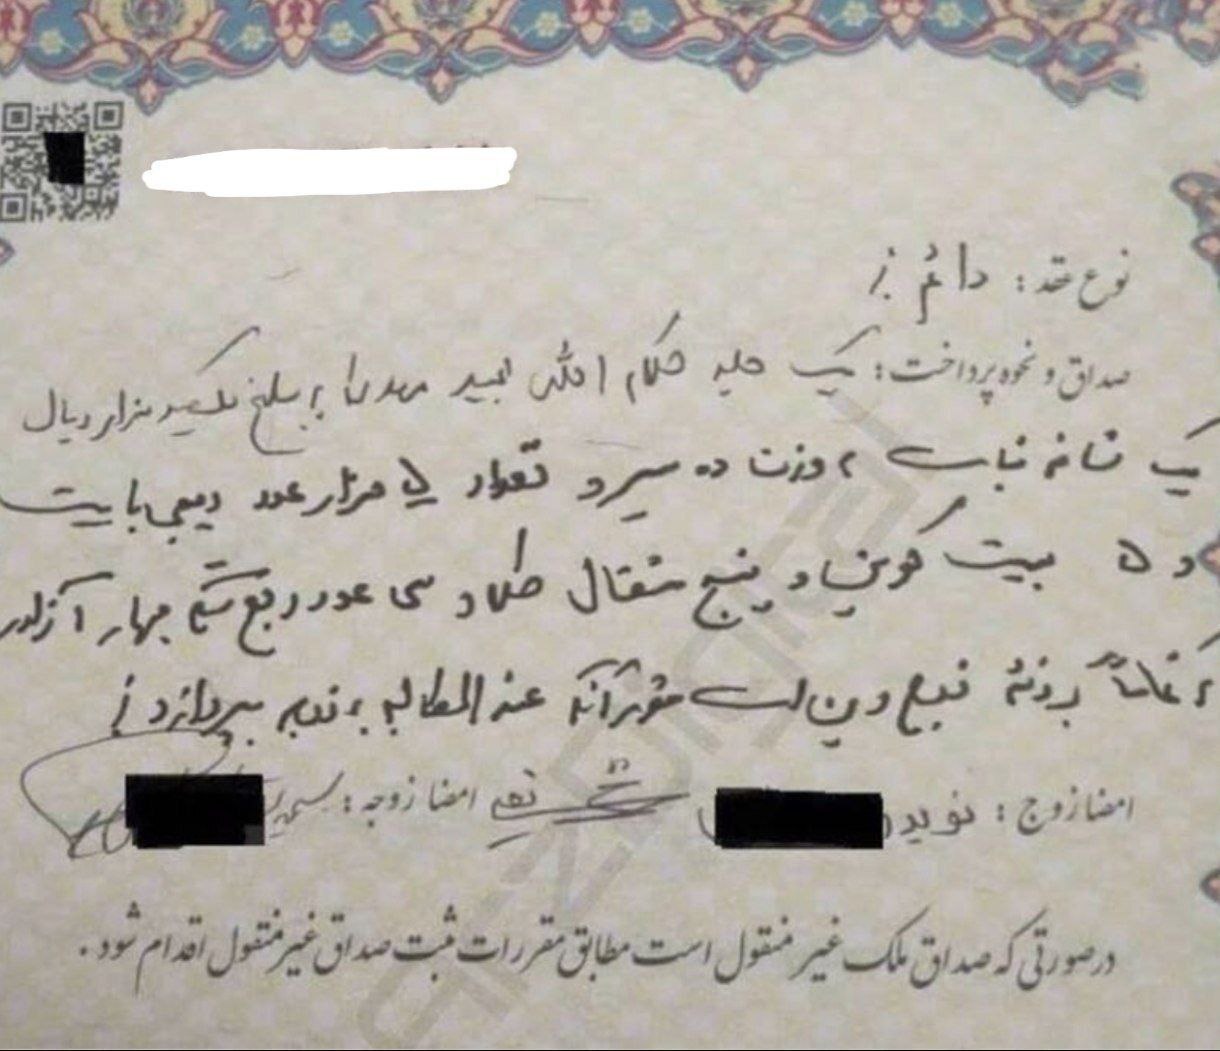 نوع عقد: دائم
صداق و نحوه پرداخت: یک جلد کلام الله مجید مهریه بمبلغ یکصد هزار ریال
یک شاخه نبات بوزن ده سیر و تعداد ۵ هزار عدد بیت
و ۵ بیت کوین و پنج مثقال طلا و سی عدد ربع سکه بهار آزادی
که تماماً بر ذمه زوج دین است عندالمطالبه به زوجه بپردازد
امضا زوج: نوید امضا زوجه:
درصورتی که صداق ملک غیر منقول است مطابق مقررات ثبت صداق غیر منقول اقدام شود.